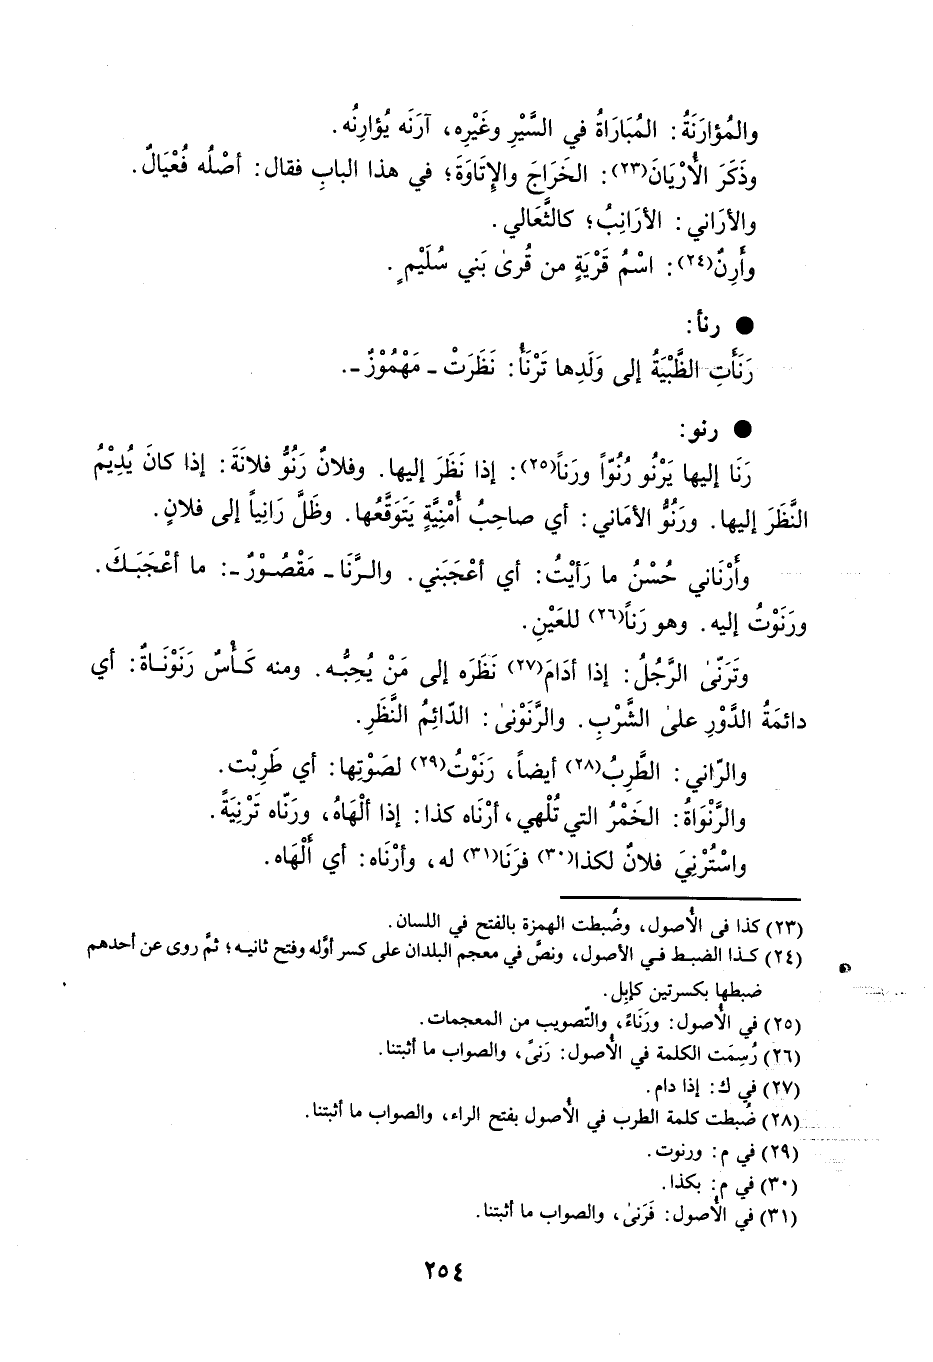 والمُؤارَنَةُ: المُبَارَاةُ في السَّيْرِ وغَيْرِه، آرَنَه يُؤارِنُه.
وذَكَرَ الأُرْيَانَ(٢٣): الخَرَاجَ والإِتَاوَةَ؛ في هذا البابِ فقال: أصْلُه فُعْيَالٌ.
والأرَاني: الأرَانِبُ؛ كالثَّعَالي.
وأَرِنٌ(٢٤): اسْمُ قَرْيَةٍ من قُرىٰ بَني سُلَيْمٍ.
● رنأ:
رَنَأَتِ الظَّبْيَةُ إلى وَلَدِها تَرْنَأُ: نَظَرَتْ ـ مَهْمُوْزٌ ـ.
● رنو:
رَنَا إليها يَرْنُو رُنُوّاً ورَناً(٢٥): إذا نَظَرَ إليها. وفلانٌ رَنُوُّ فلانَةَ: إذا كانَ يُدِيْمُ
النَّظَرَ إليها. ورَنُوُّ الأمَاني: أي صاحِبُ أُمْنِيَّةٍ يَتَوَقَّعُها. وظَلَّ رَانِياً إلى فلانٍ.
وأَرْنَاني حُسْنُ ما رَأيْتُ: أي أعْجَبَني. والرَّنَا ـ مَقْصُوْرٌ ـ: ما أعْجَبَكَ.
ورَنَوْتُ إليه. وهو رَناً(٢٦) للعَيْنِ.
وتَرَنّىٰ الرَّجُلُ: إذا أدَامَ(٢٧) نَظَرَه إلى مَنْ يُحِبُّه. ومنه كَأْسٌ رَنَوْنَاةٌ: أي
دائمَةُ الدَّوْرِ علىٰ الشَّرْبِ. والرَّنَوْنىٰ: الدّائِمُ النَّظَرِ.
والرّاني: الطَّرِبُ(٢٨) أيضاً، رَنَوْتُ(٢٩) لصَوْتِها: أي طَرِبْت.
والرَّنْوَاةُ: الخَمْرُ التي تُلْهي، أرْنَاه كذا: إذا ألْهَاهُ، ورَنّاه تَرْنِيَةً.
واسْتُرْنِيَ فلانٌ لكذا(٣٠) فرَنَا(٣١) له، وأرْنَاه: أي أَلْهَاه.
(٢٣) كذا في الأُصول، وضُبطت الهمزة بالفتح في اللسان.
(٢٤) كذا الضبط في الأصول، ونصَّ في معجم البلدان على كسر أوَّله وفتح ثانيه؛ ثمَّ روى عن أحدهم
ضبطها بكسرتين كإبل.
(٢٥) في الأُصول: ورَنَاءً، والتّصويب من المعجمات.
(٢٦) رُسِمَت الكلمة في الأُصول: رَنىً، والصواب ما أثبتنا.
(٢٧) في ك: إذا دام.
(٢٨) ضُبطت كلمة الطرب في الأُصول بفتح الراء، والصواب ما أثبتنا.
(٢٩) في م: ورنوت.
(٣٠) في م: بكذا.
(٣١) في الأُصول: فَرَنىٰ، والصواب ما أثبتنا.
٢٥٤